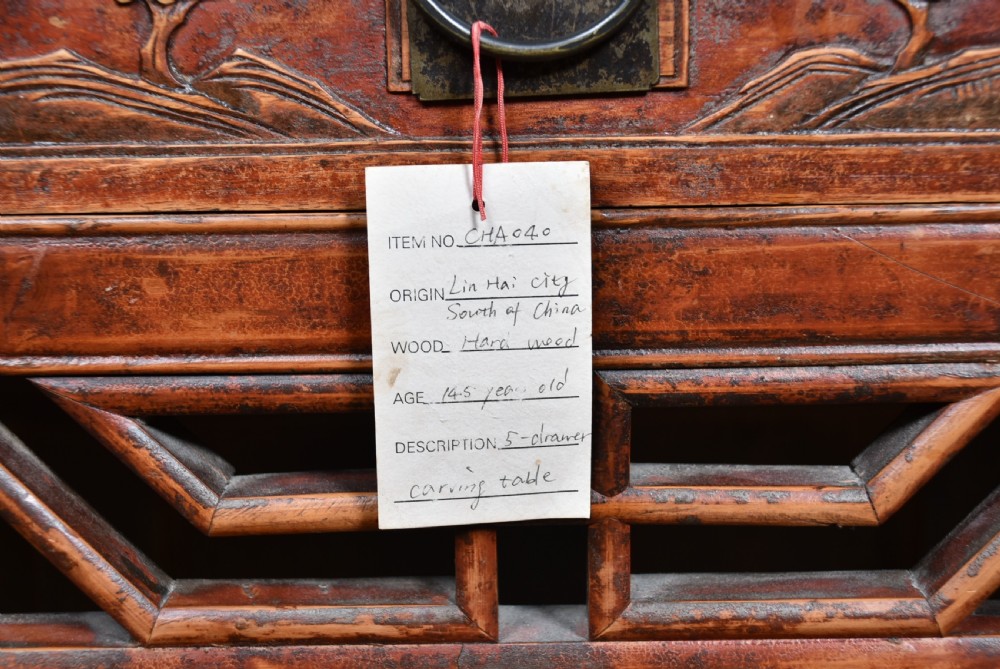 ITEM NO. CHA040
ORIGIN Lin Hai city
South of China
WOOD Hard wood
AGE 145 year old
DESCRIPTION 5-drawer
carving table